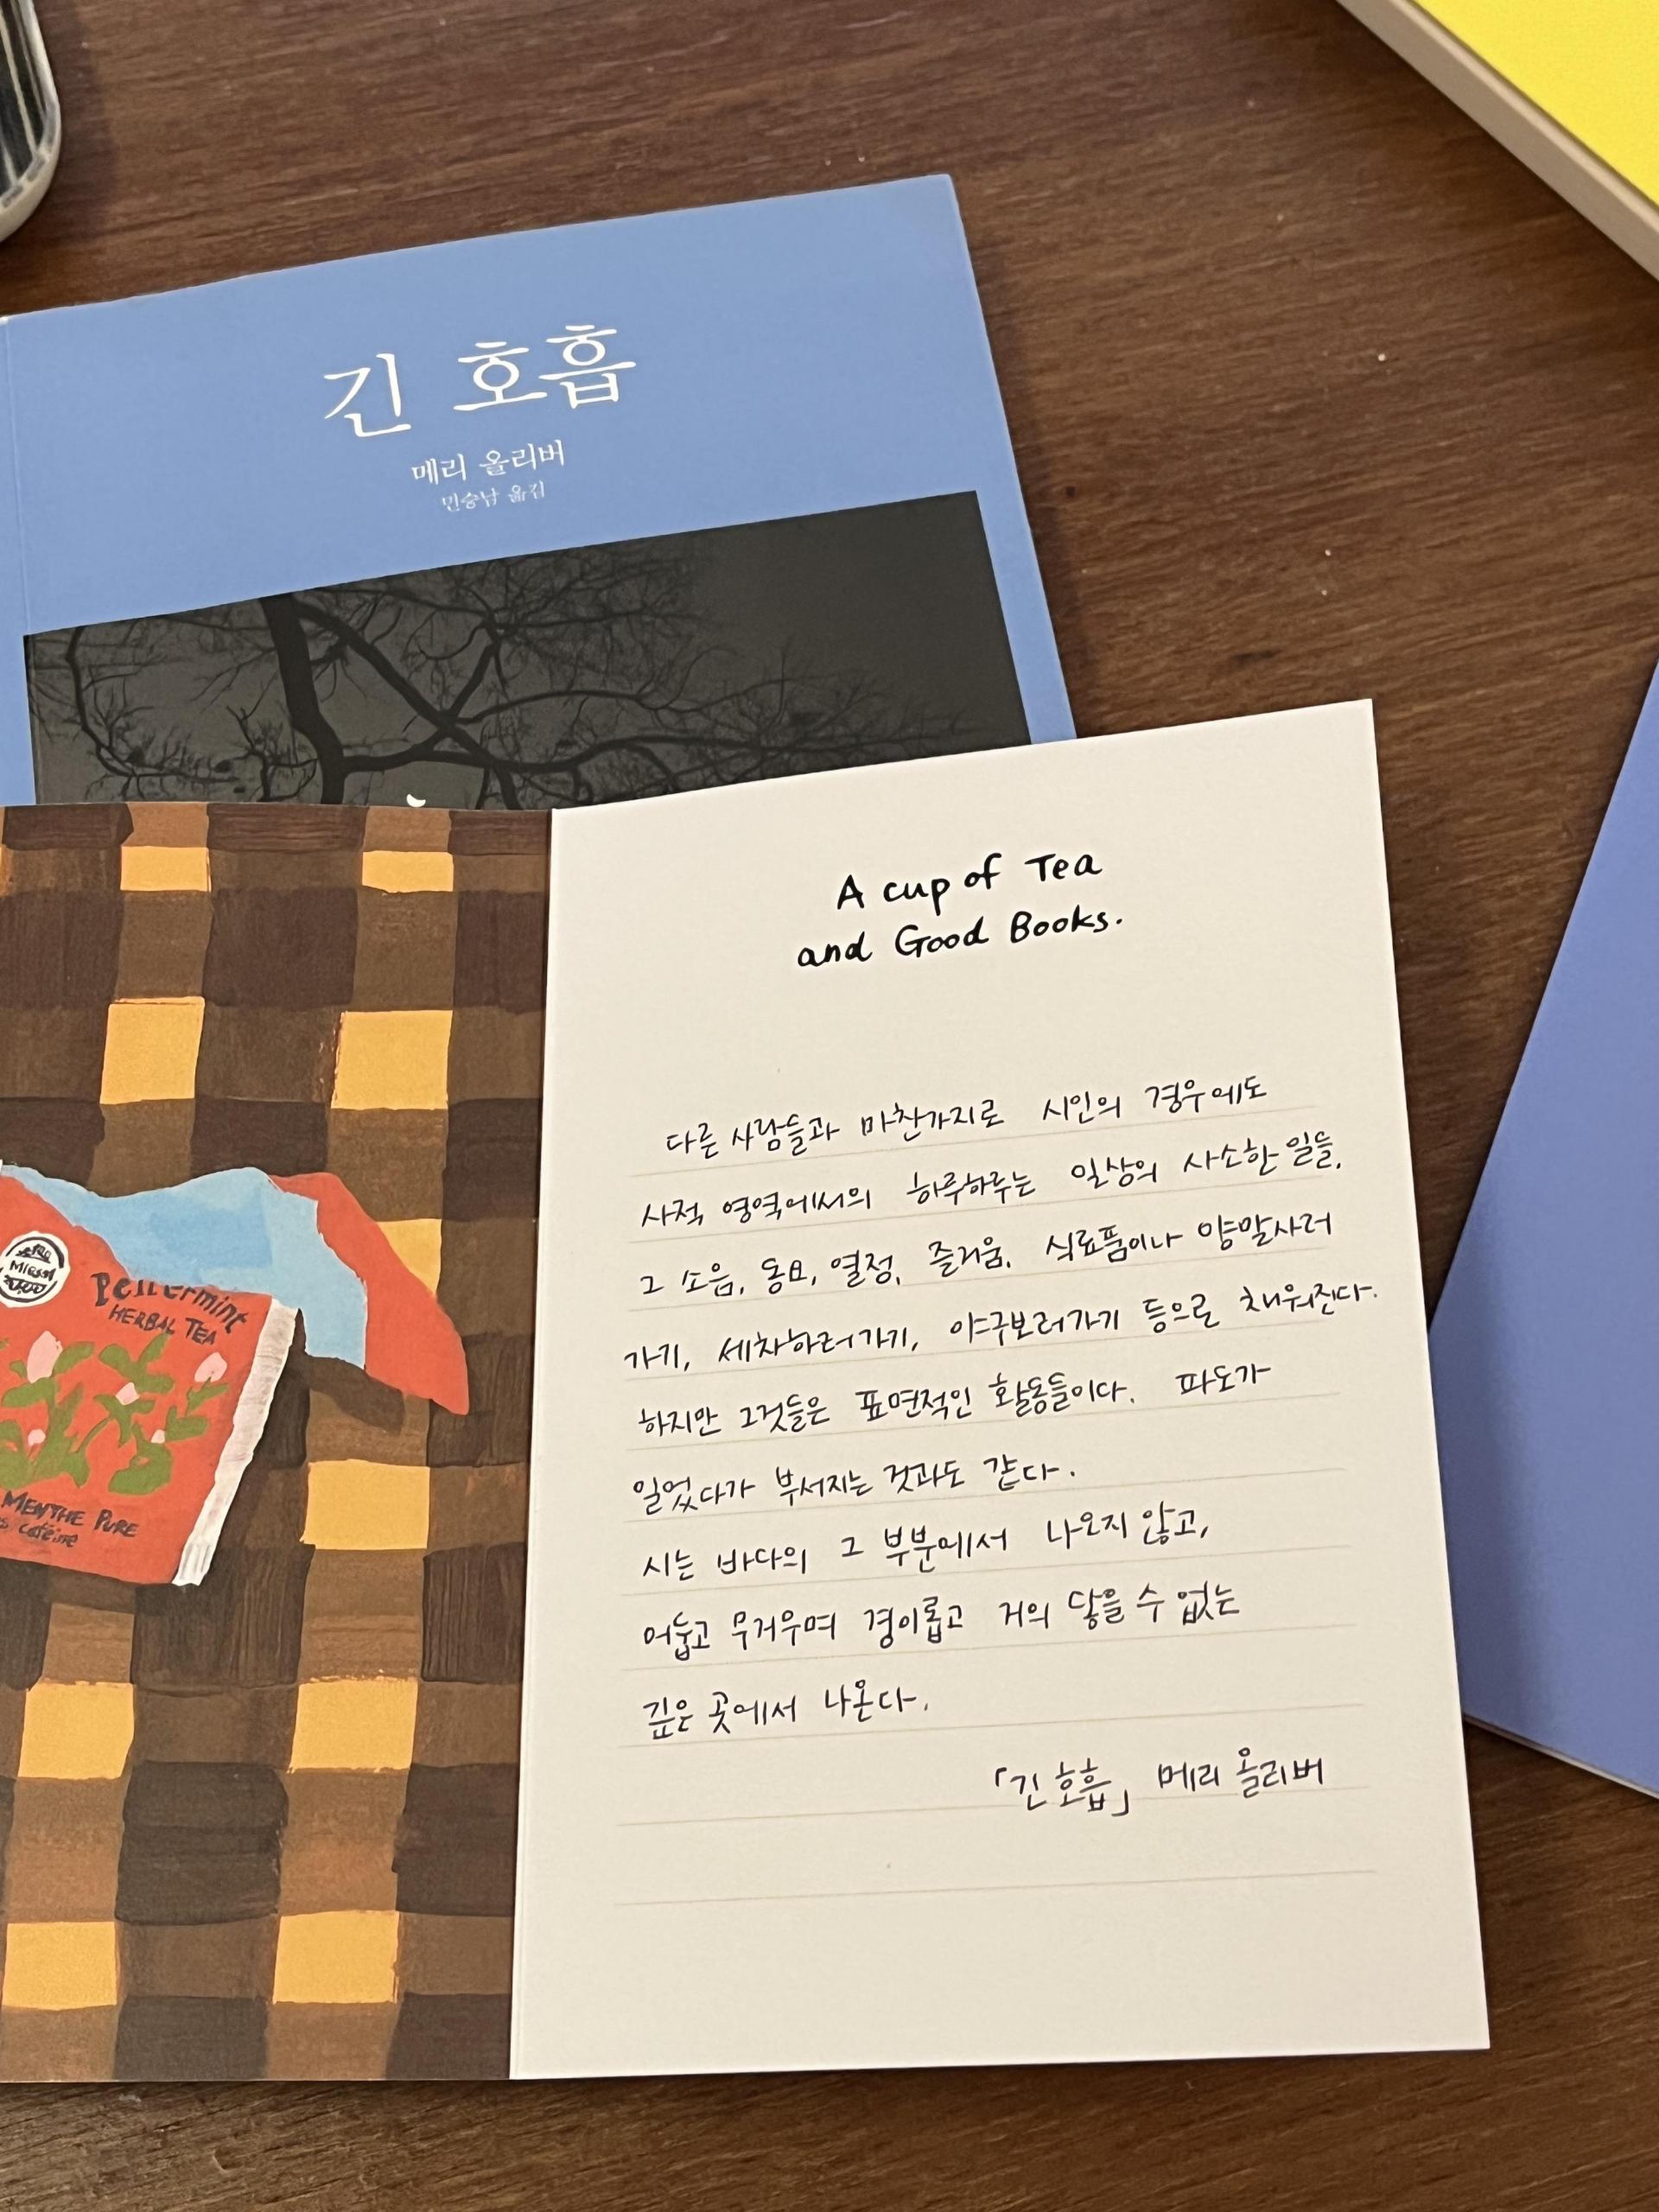 긴 호흡
메리 올리버
민승남 옮김
A cup of Tea
and Good Books.
다른 사람들과 마찬가지로 시인의 경우에도
사적 영역에서의 하루하루는 일상의 사소한 일들,
그 소음, 동요, 열정, 즐거움, 식료품이나 양말사러
가기, 세차하러가기, 야구보러가기 등으로 채워진다.
하지만 그것들은 표면적인 활동들이다. 파도가
일었다가 부서지는 것과도 같다.
시는 바다의 그 부분에서 나오지 않고,
어둡고 무거우며 경이롭고 거의 닿을 수 없는
깊은 곳에서 나온다.
「긴 호흡」 메리 올리버
HERBAL TEA
MENTHE PURE
caféine